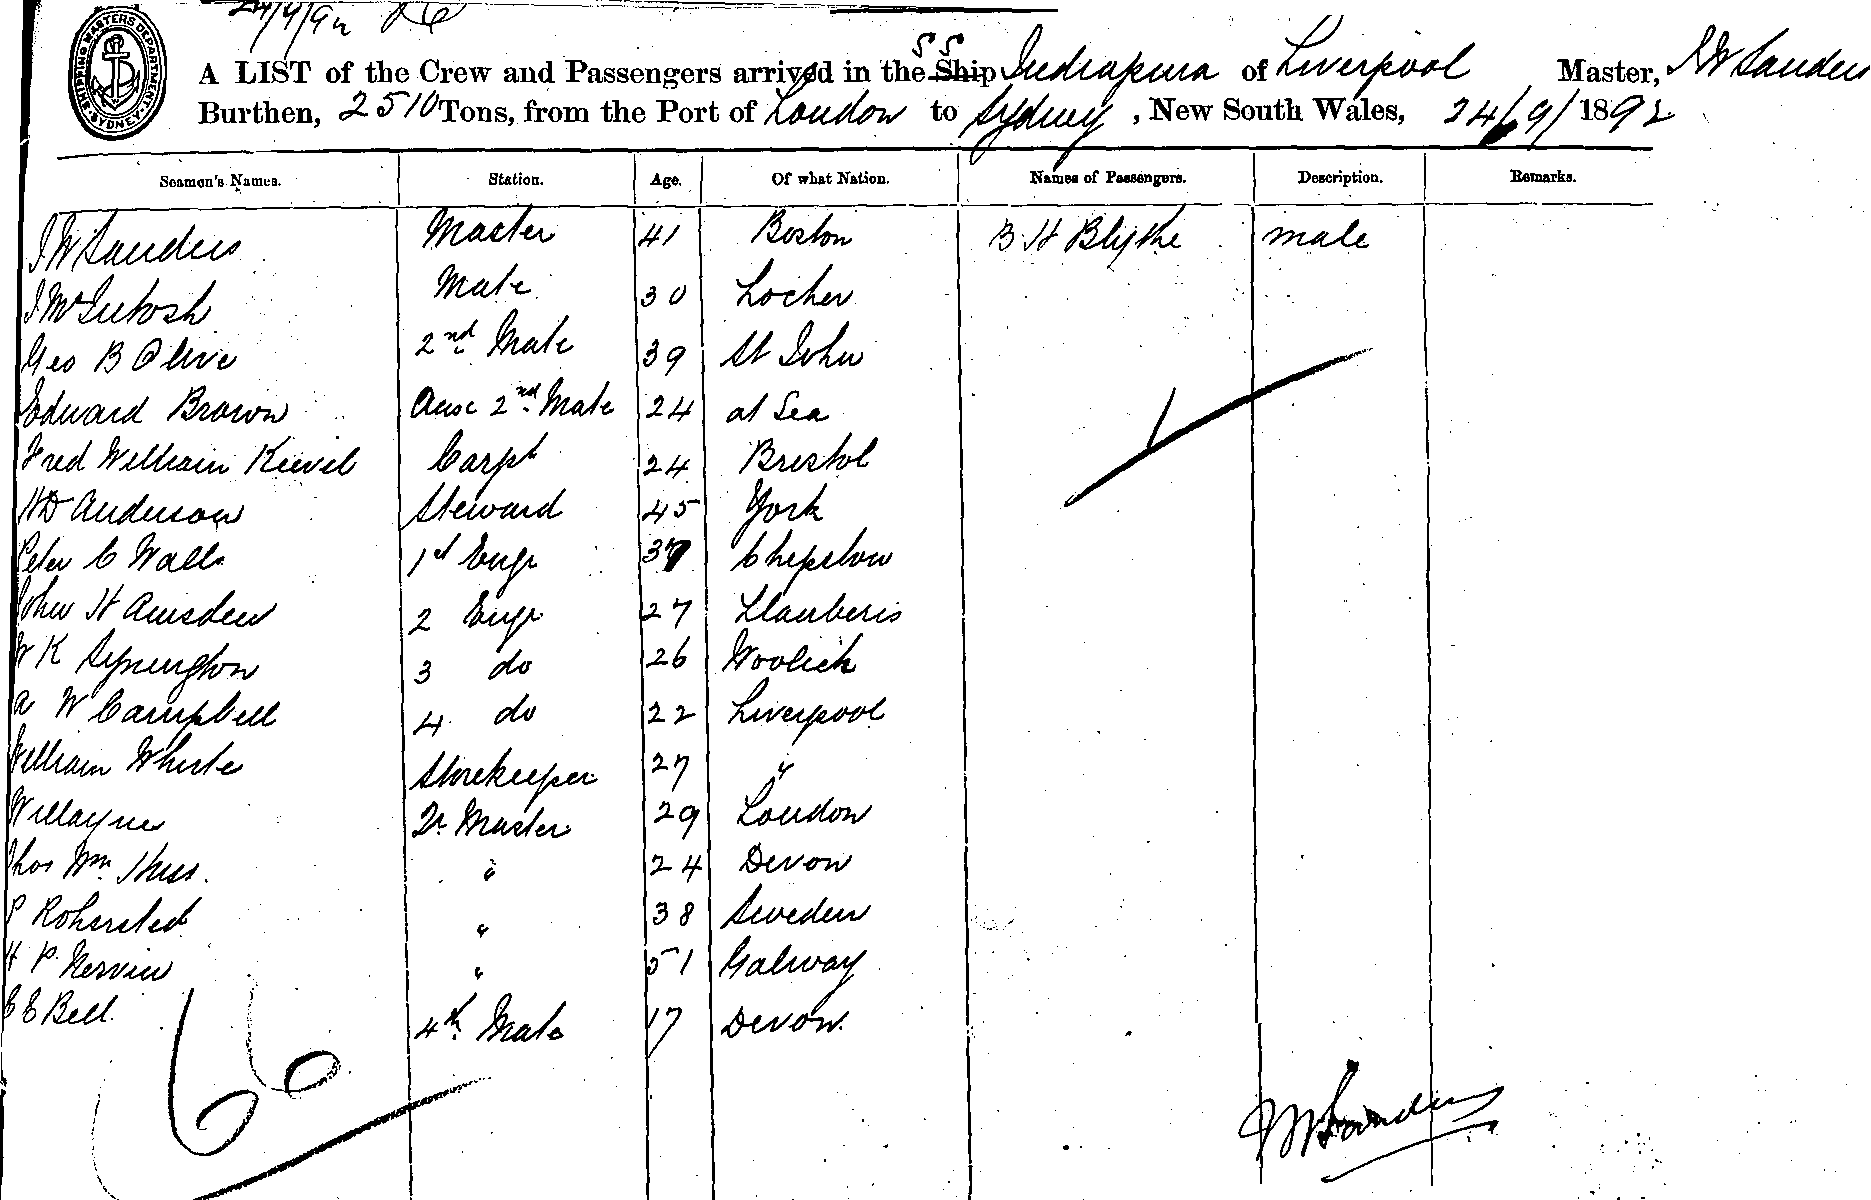 24/9/92
SHIPPING MASTERS DEPARTMENT SYDNEY
A LIST of the Crew and Passengers arrived in the S S Ship Indrapura of Liverpool Master, J W Sanders
Burthen, 2510 Tons, from the Port of London to Sydney, New South Wales, 24/9/1892
Seamen's Names. Station. Age. Of what Nation. Names of Passengers. Description. Remarks.
J W Sanders Master 41 Boston B H Blythe male
J McIntosh Mate 30 Locher
Geo B Olive 2nd Mate 39 St John
Edward Brown Ause 2nd Mate 24 at Sea
Fred William Keevil Carpt 24 Bristol
H D Anderson Steward 45 York
Peter C Walls 1st Engr 37 Chepstow
John H Amsden 2 Engr 27 Llanberis
W K Symington 3 do 26 Woolich
A W Campbell 4 do 22 Liverpool
William White Storekeeper 27 "
W Mayne Qr Master 29 London
Thos Wm " 24 Devon
P " 38 Sweden
H P Nervin " 51 Galway
C E Bell 4th Mate 17 Devon
66
J W Sanders